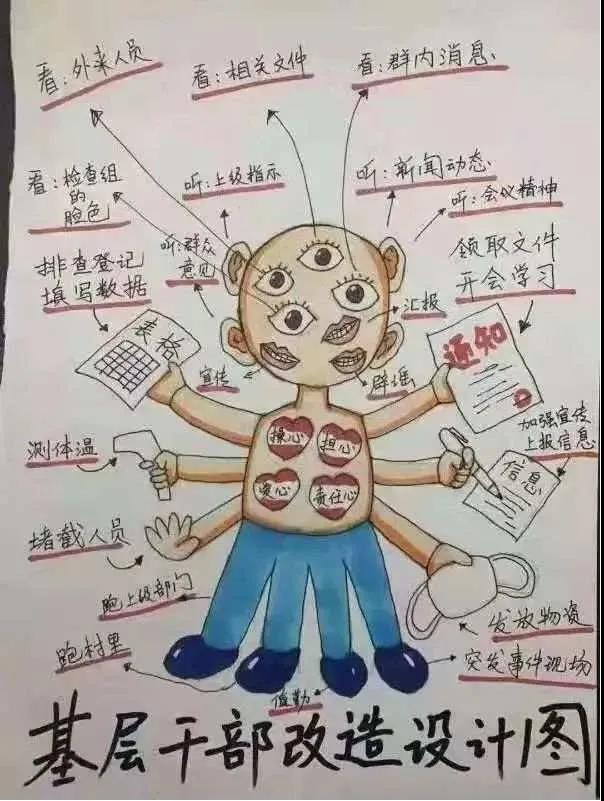 看：外来人员
看：相关文件
看：群内消息
看：检查组
的
脸色
听：上级指示
听：新闻动态
听：会议精神
听：群众
意见
排查登记
填写数据
领取文件
开会学习
汇报
宣传
辟谣
表格
通知
操心
担心
爱心
责任心
测体温
加强宣传
上报信息
信息
堵截人员
跑上级部门
发放物资
跑村里
值勤
突发事件现场
基层干部改造设计图